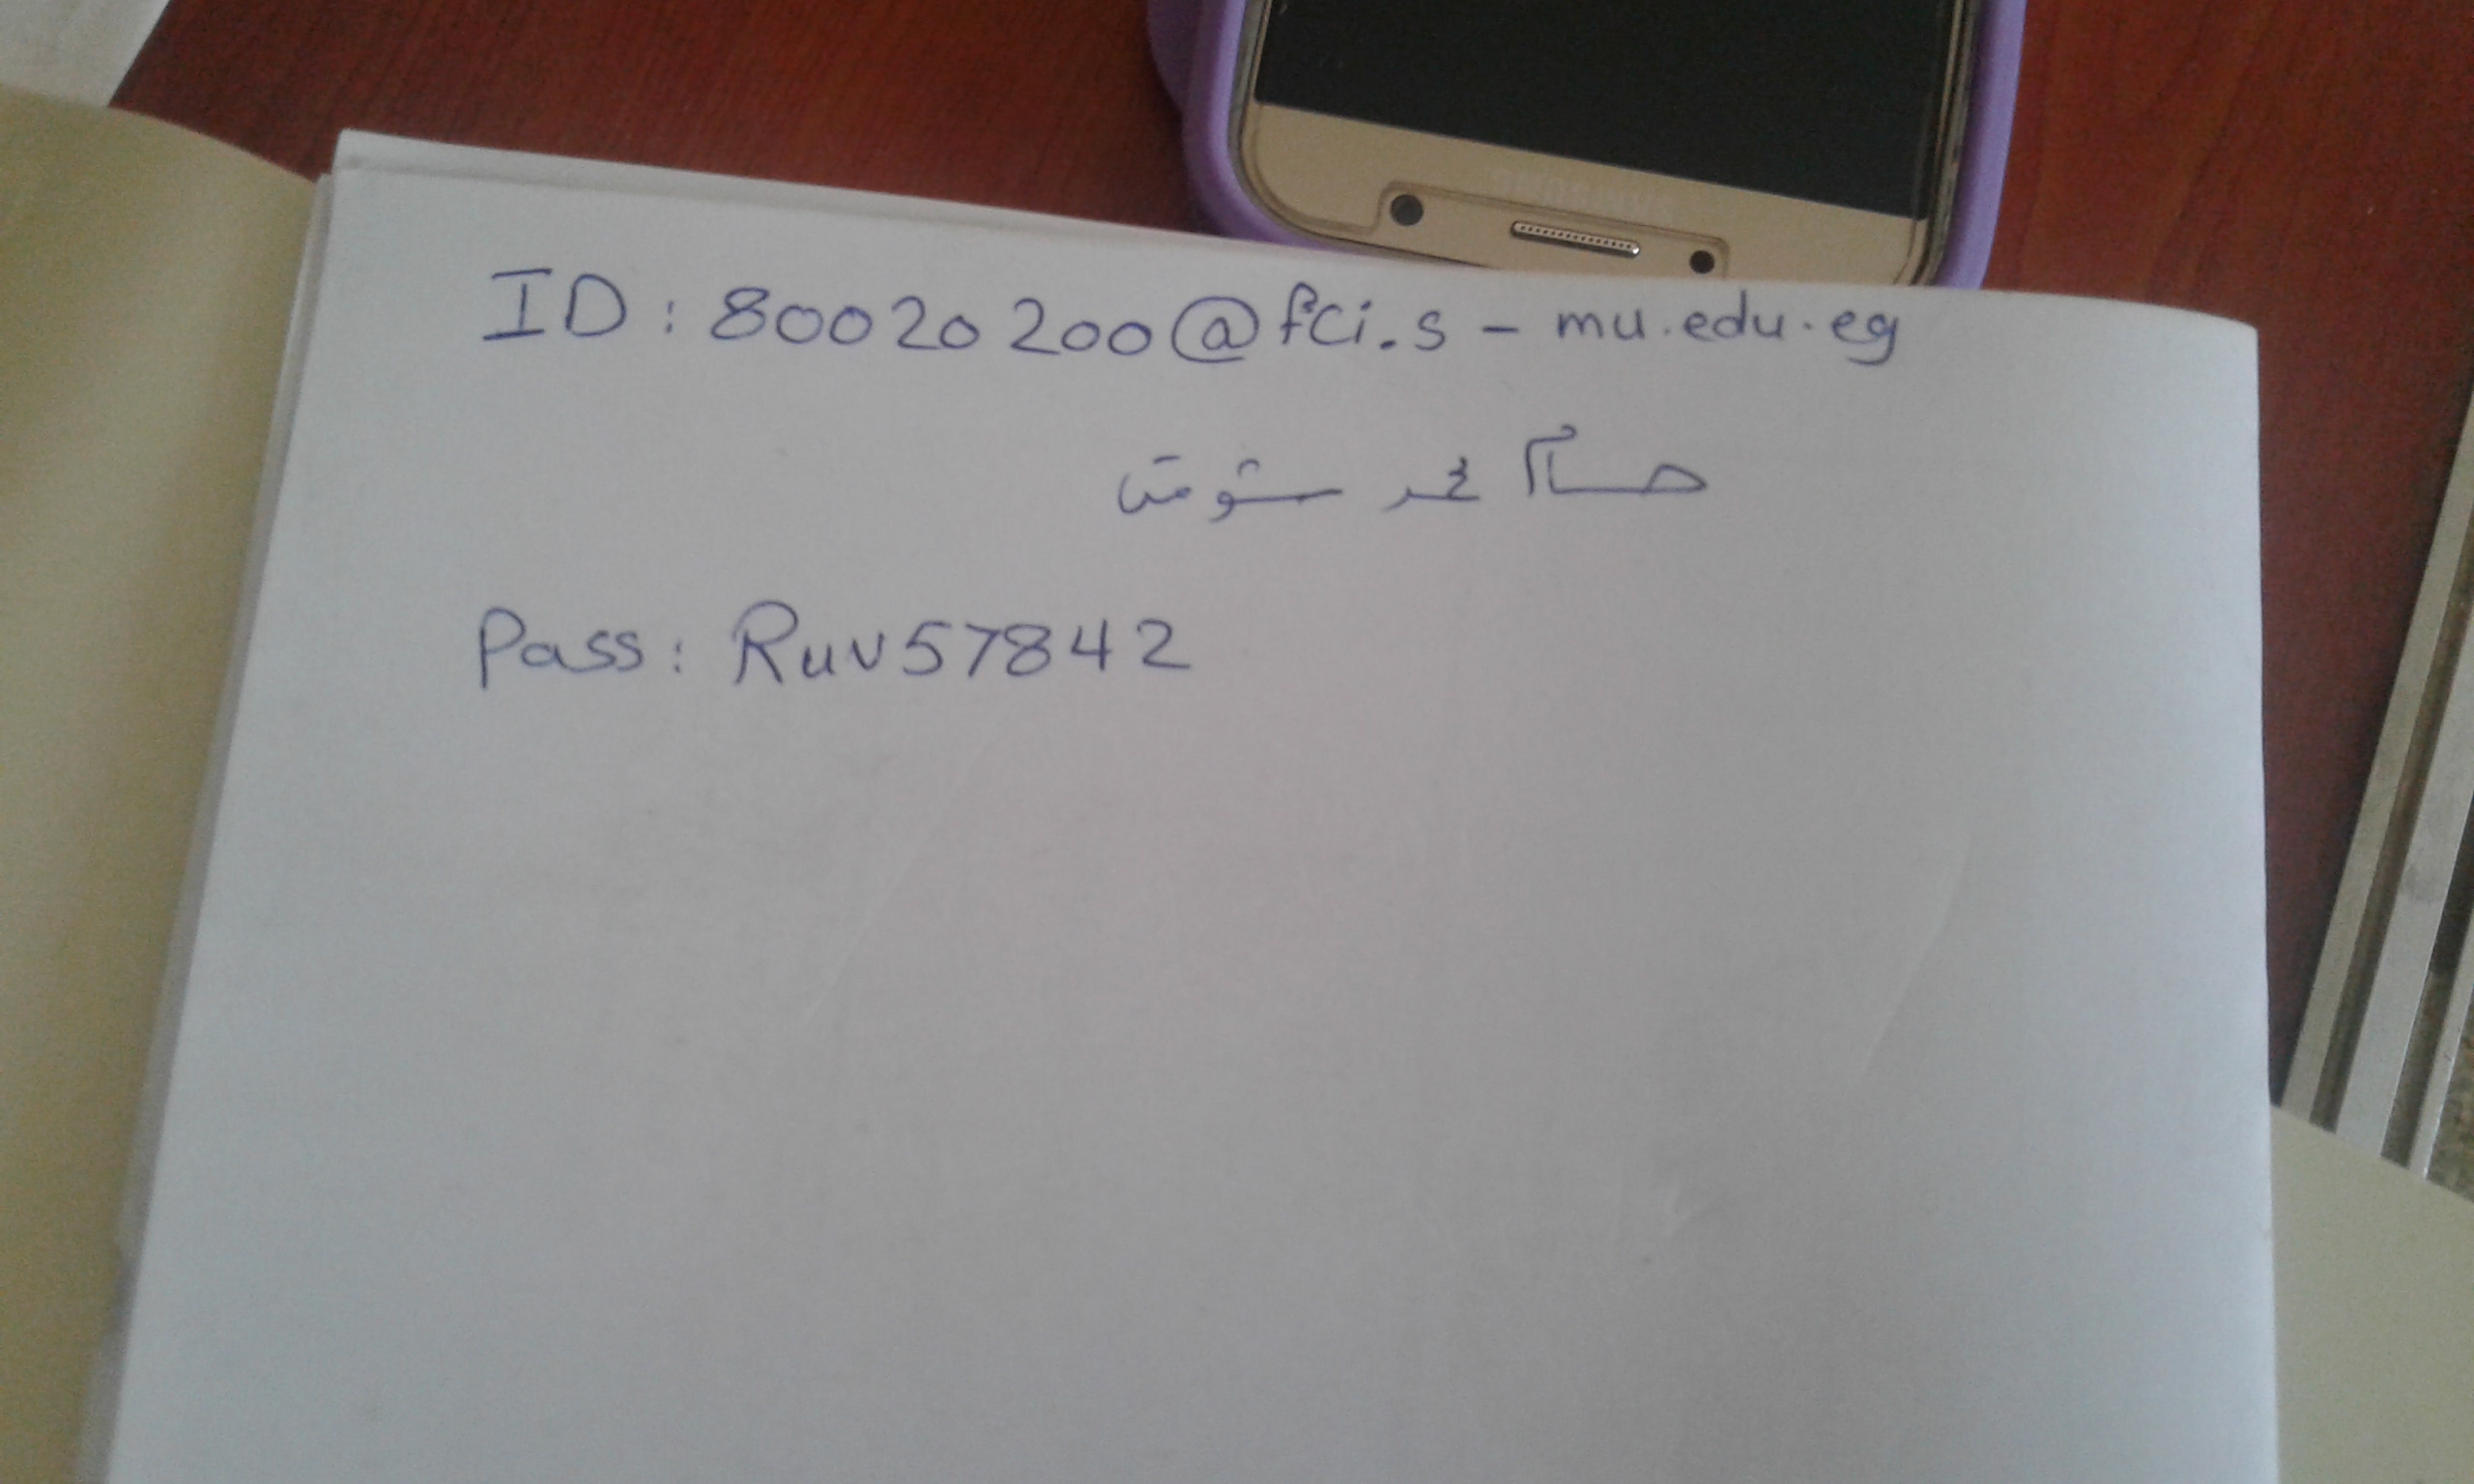 ID : 80020200@fci.s-mu.edu.eg
حسام محمد شوقى
Pass : Ruv57842